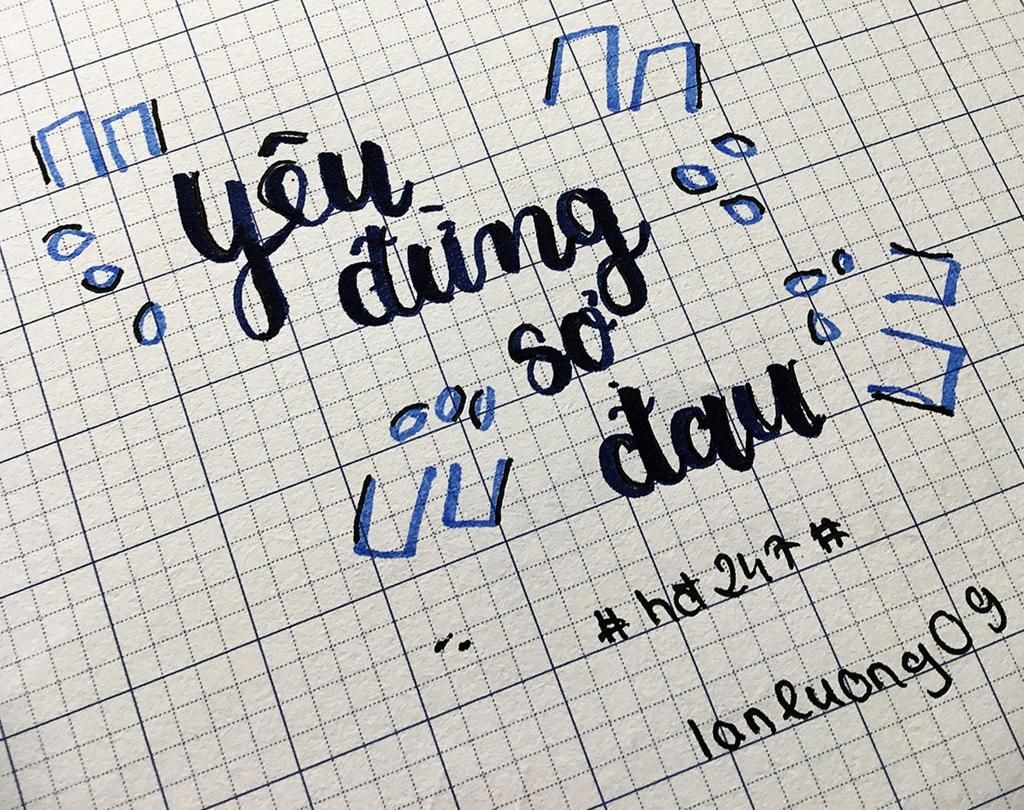 yêu
đừng
sợ
đau
# hd 247 #
lanluong09